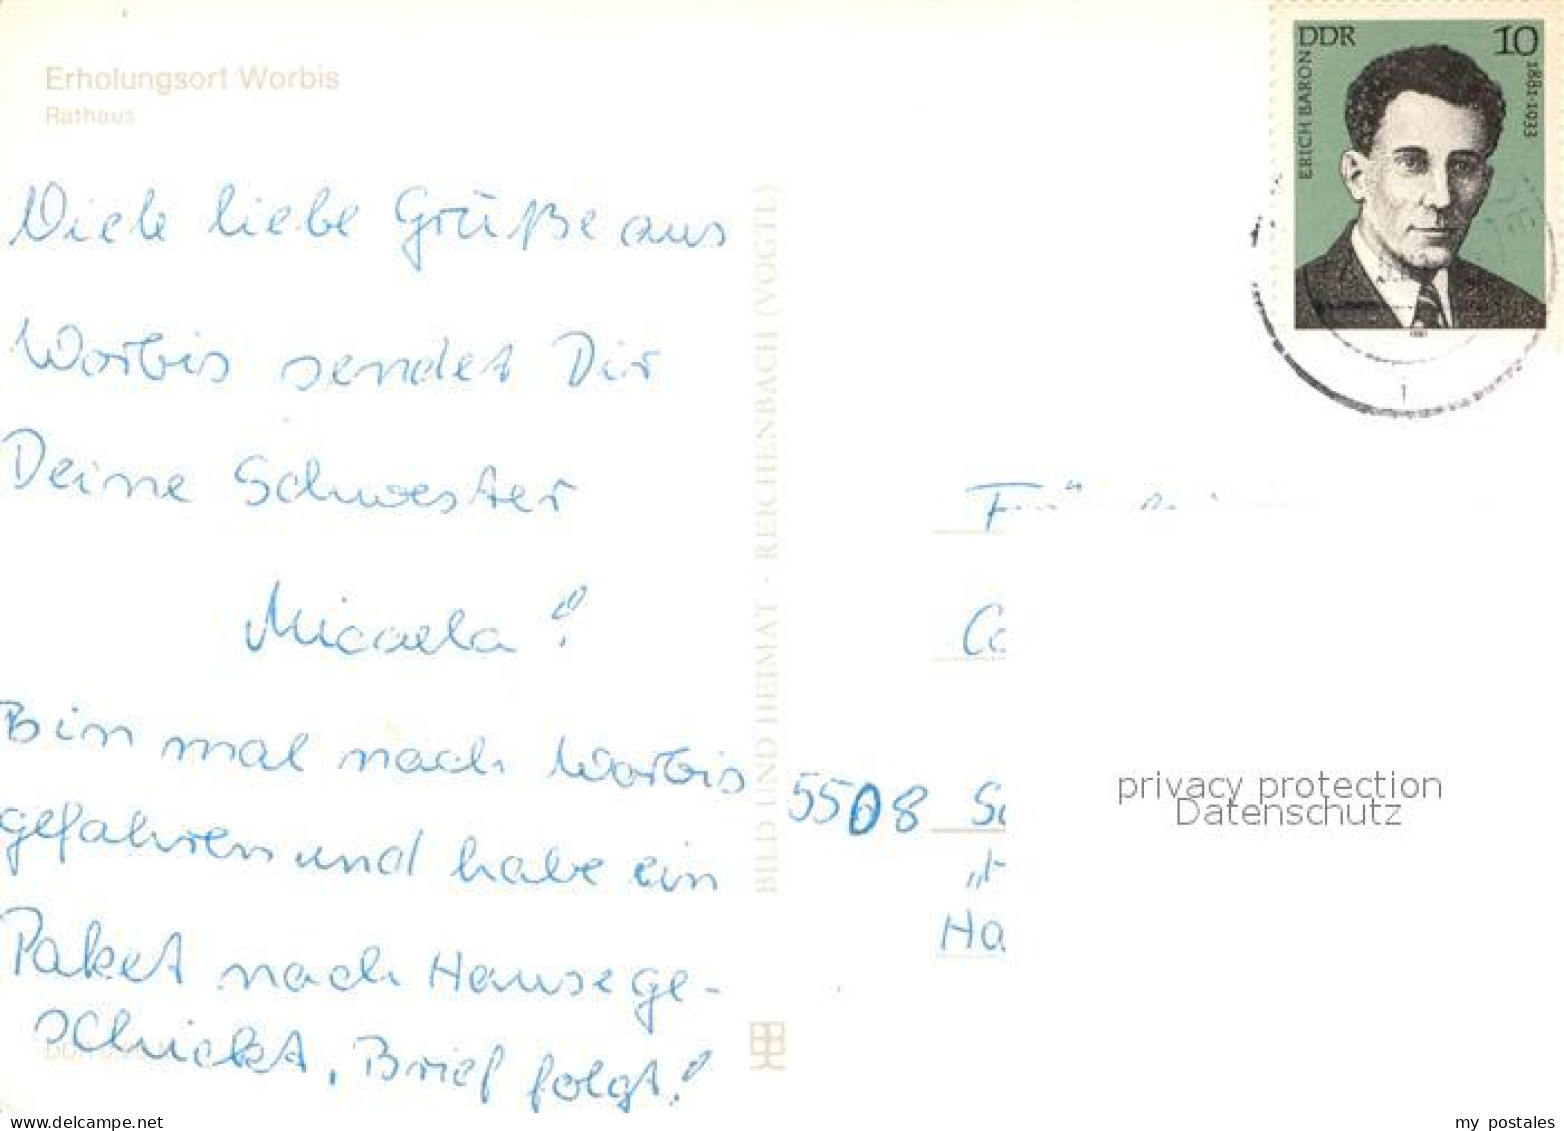 Erholungsort Worbis
Rathaus
Viele liebe Grüße aus
Worbis sendet Dir
Deine Schwester
Micaela!
Bin mal nach Worbis
gefahren und habe ein
Paket nach Hause ge-
schickt, Brief folgt!
BILD UND HEIMAT · REICHENBACH (VOGTL)
DDR 10
ERICH BARON
1881-1933
5508
privacy protection
Datenschutz
www.delcampe.net
my_postales